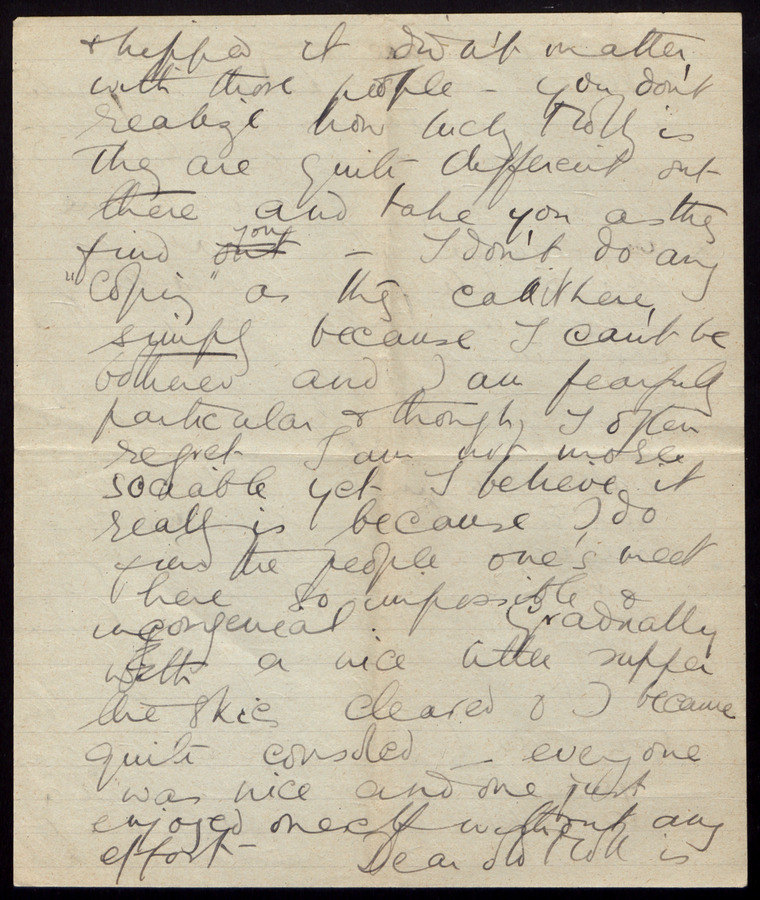 & supper it didn't matter
with those people - you don't
realize how lucky Troll is
they are quite different out
there and take you as they
find out you - I don't do any
"Coping" as they call it here,
simply because I can't be
bothered and I am fearfully
particular & though I often
regret I am not more
sociable yet I believe it
really is because I do
find the people one's meet
here so impossible &
uncongenial. Gradually
with a nice little supper
the skies cleared & I became
quite consoled - everyone
was nice and one just
enjoyed oneself without any
effort - Dear old Troll is